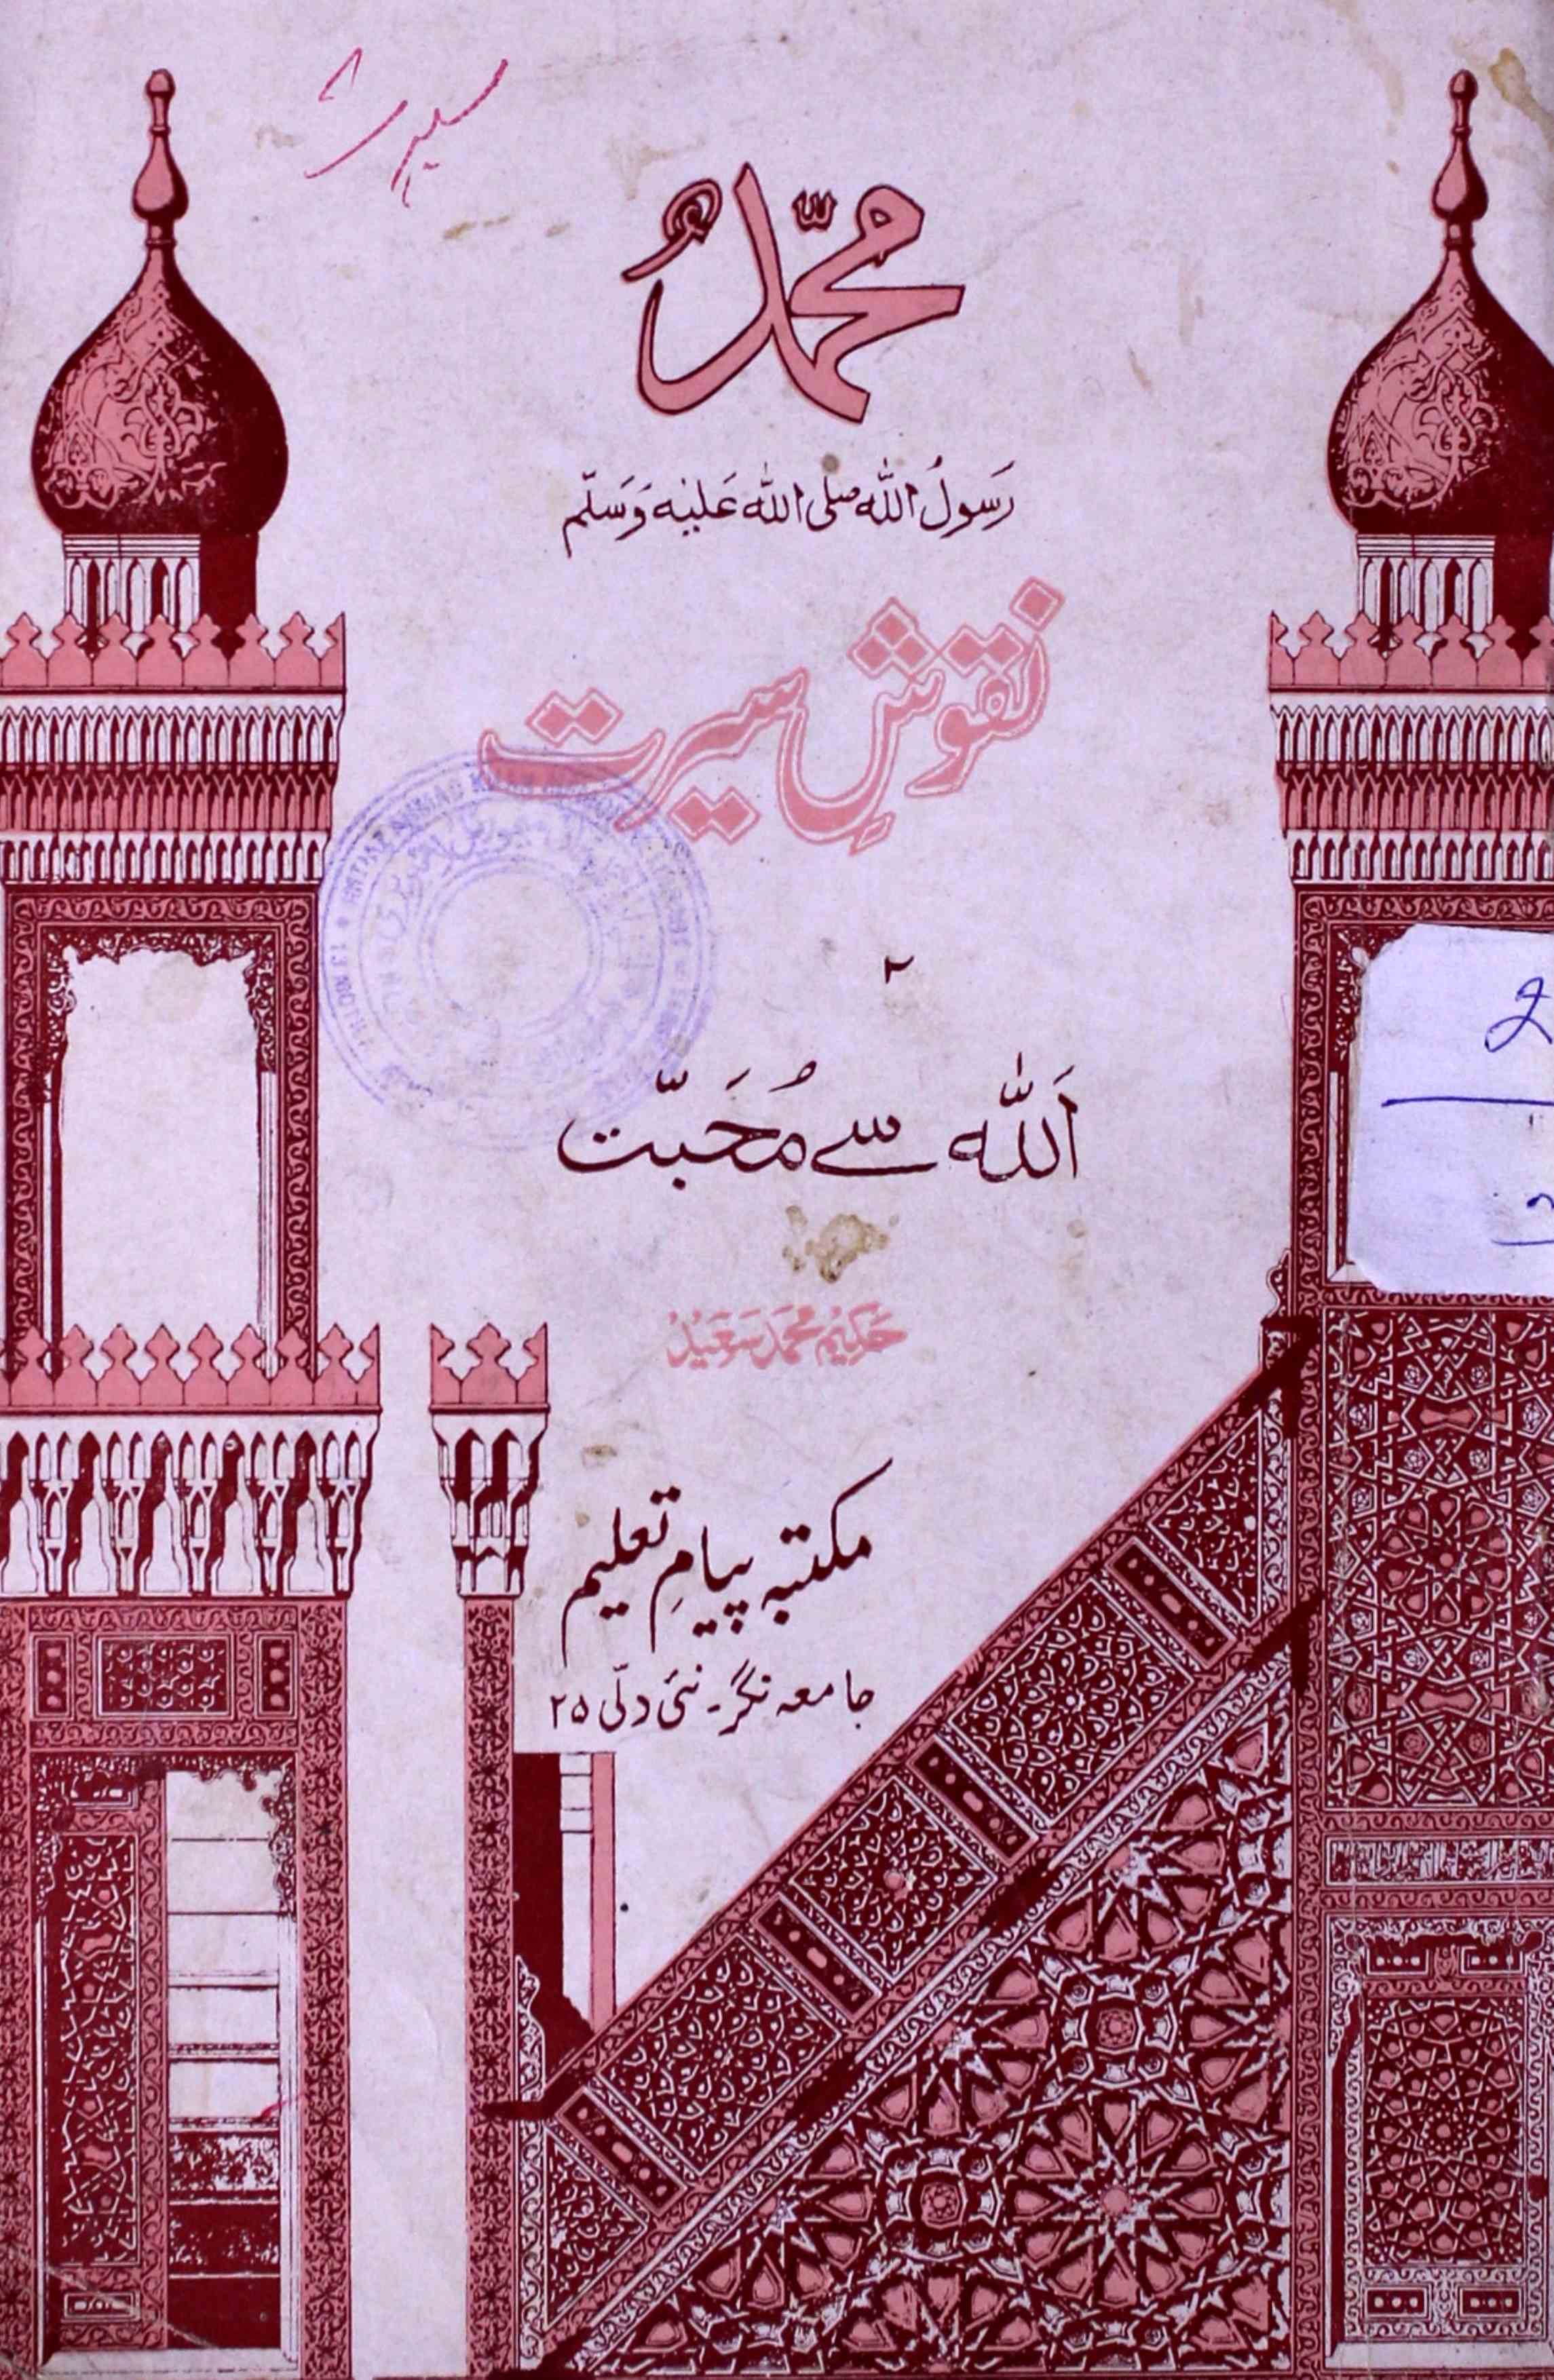 سیرت
محمدٌ
رَسولُ اللہ صلی اللہ عَلیہ وَسَلّم
نقوشِ سیرت
۲
اَللہ سے مُحَبّت
حَکیم محمّد سَعید
مکتبہ پیامِ تعلیم
جامعہ نگر۔ نئی دلّی ۲۵